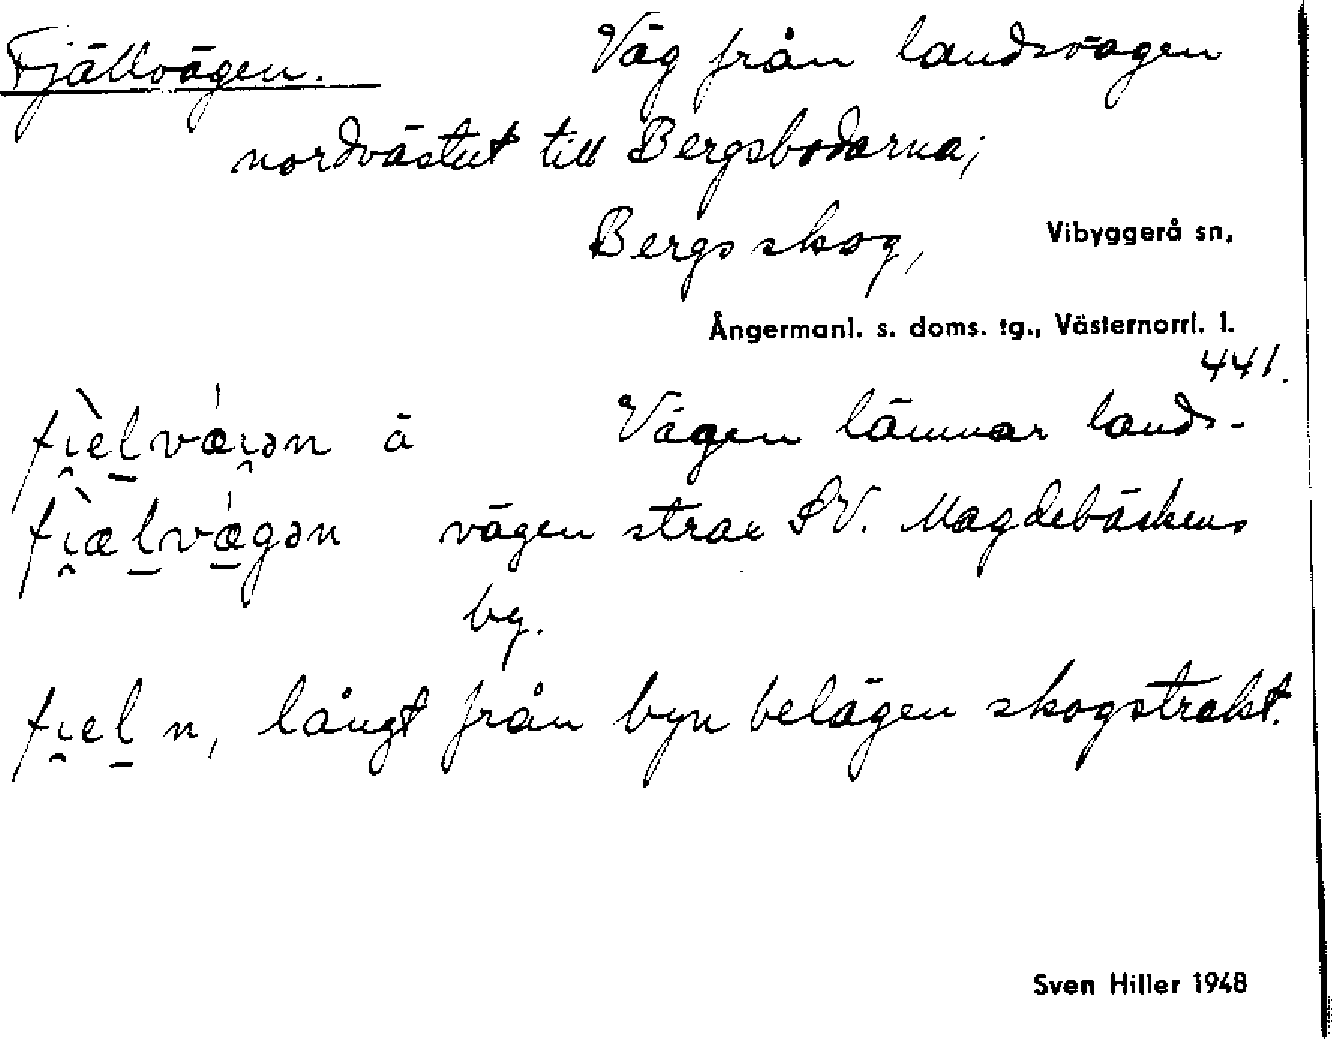 Fjällvägen. Väg från landsvägen
nordvästut till Bergsbodarna;
Bergs skog, Vibyggerå sn,
Ångermanl. s. doms. tg., Västernorrl. l.
441.
fi̯èl̠vǽi̯ən ä Vägen lämnar lands-
fi̯æ̀l̠vǽ̠gən vägen strax SV. Magdebäckens
by.
fi̯el̠ n, långt från byn belägen skogstrakt.
Sven Hiller 1948